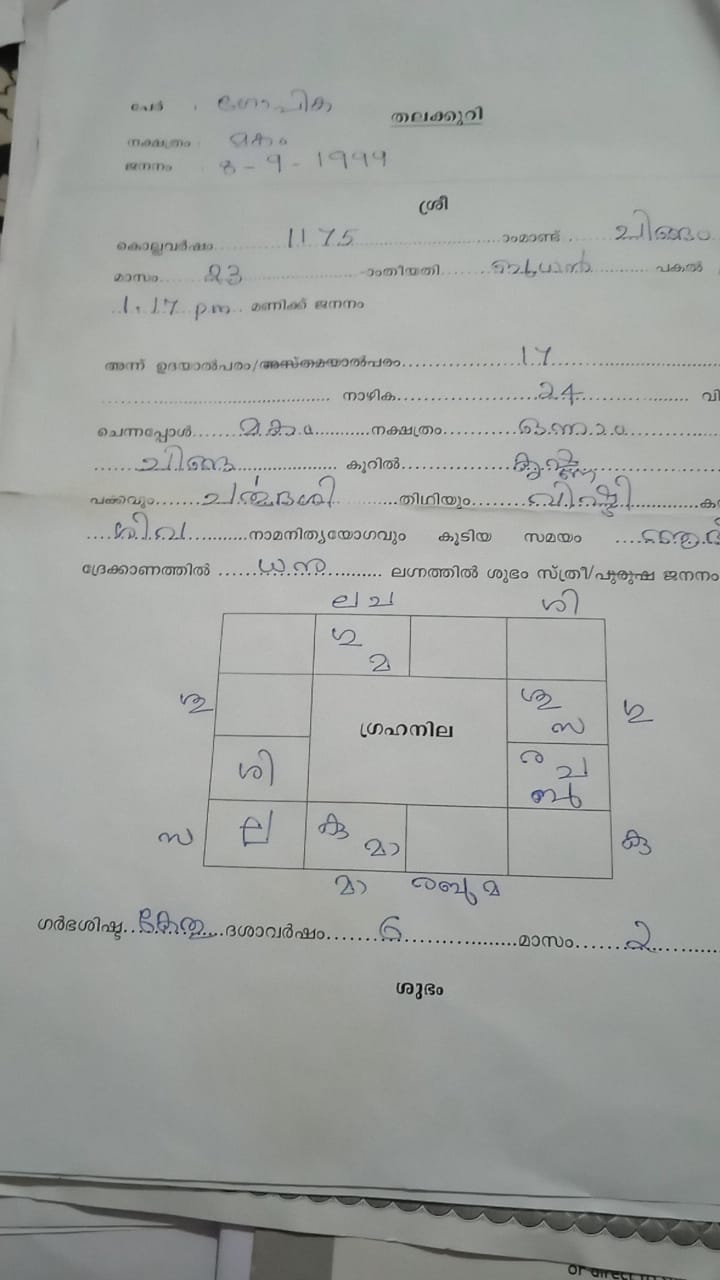 പേര് : ഗോപിക
തലക്കുറി
നക്ഷത്രം : മകം
ജനനം : 8-9-1999
ശ്രീ
കൊല്ലവർഷം 1175 ാംമാണ്ട് ചിങ്ങം
മാസം 23 ാംതിയതി ബുധൻ പകൽ
1.17 pm മണിക്ക് ജനനം
അന്ന് ഉദയാൽപരം/അസ്തമയാൽപരം 17
നാഴിക 24 വി
ചെന്നപ്പോൾ മകം നക്ഷത്രം ഒന്നാം
ചിങ്ങ കൂറിൽ കൃഷ്ണ
പക്ഷവും ചതുർദശി തിഥിയും വിഷ്ടി ക
ശിവ നാമനിത്യയോഗവും കൂടിയ സമയം
ദ്രേക്കാണത്തിൽ ധനു ലഗ്നത്തിൽ ശുഭം സ്ത്രീ/പുരുഷ ജനനം
ല ച ശി
ഗു
മ
ശു ശു ഗു
സ
ഗ്രഹനില
ര ച
ശി ബു
സ ല കു കു
മാ
മാ ര ബു മ
ഗർഭശിഷ്ട കേതു ദശാവർഷം 6 മാസം 2
ശുഭം